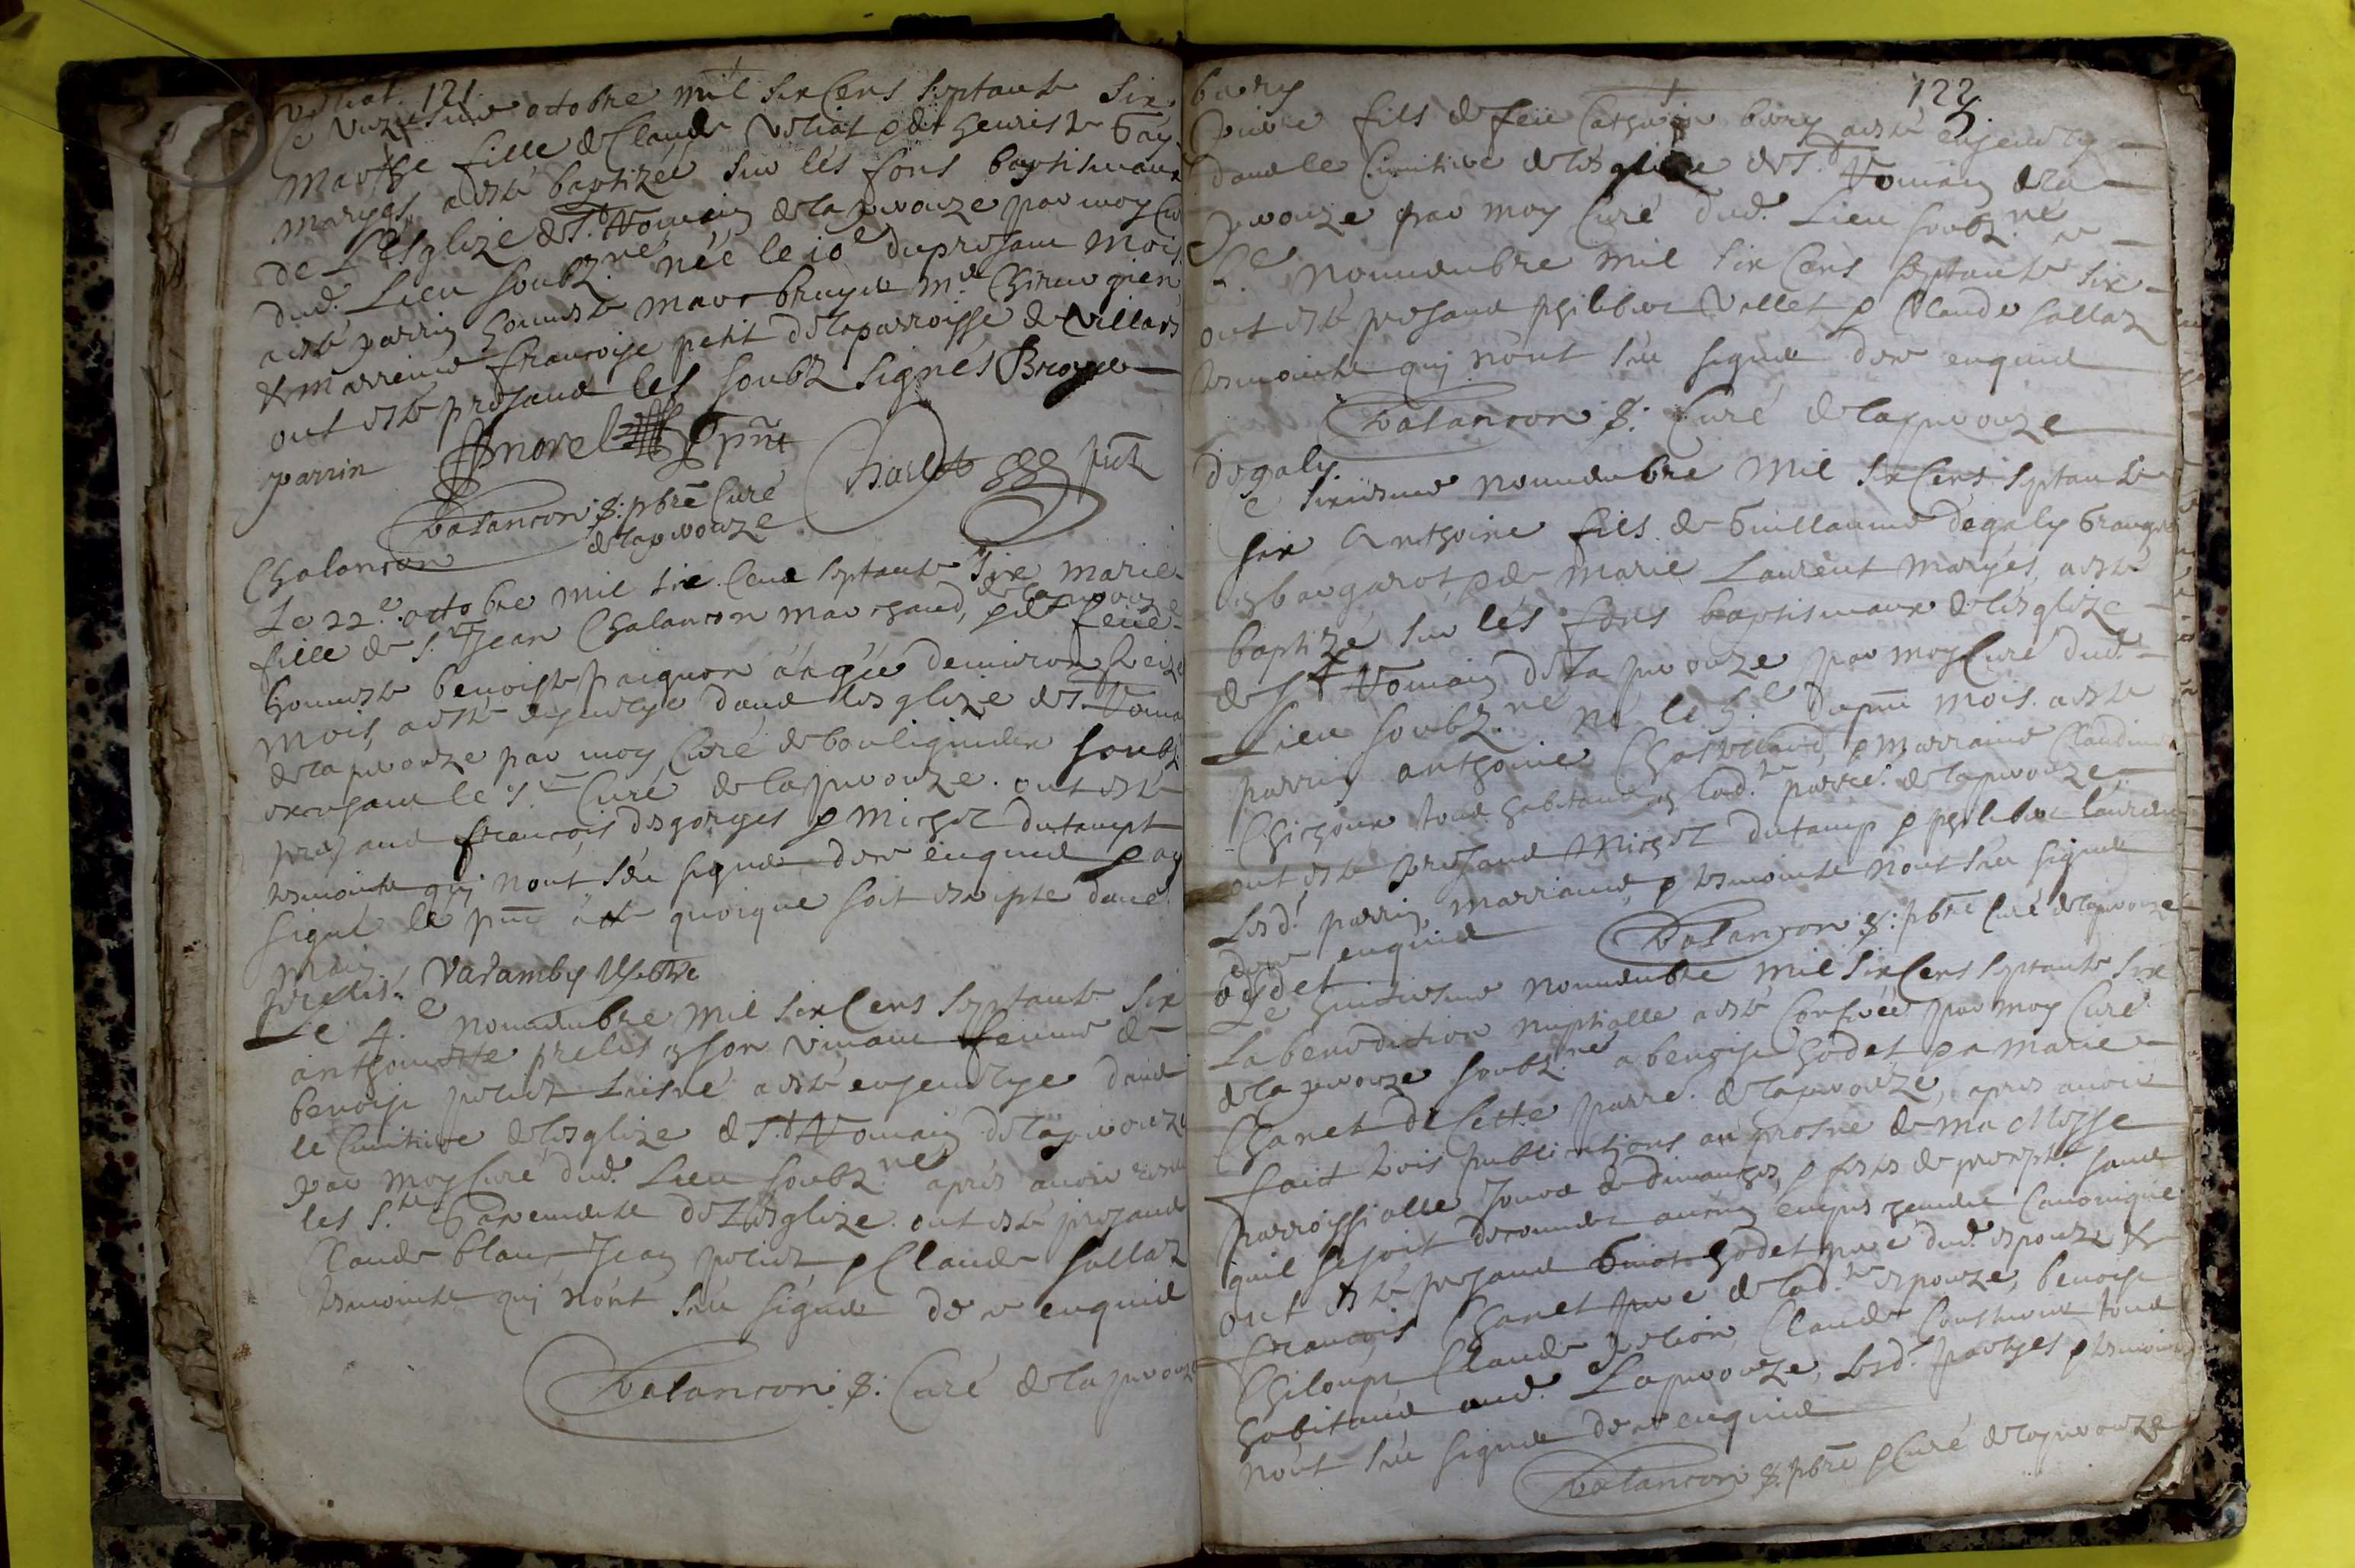 121.
Ce unziesme octobre mil six Cens septante six
marthe fille de Claude Veliat & de henriste Gay
maryés, a esté baptizée sur lés fons baptismaux
de L'esglize de St. Romain de la peyrouze par moy Cu
dud. Lieu soubz.né née le 10e du presant mois,
a esté parrin honneste marc bruyre me. Chirurgien
& marreine francoise petit de la parroisse de Villars
ont esté presant les soubz signés Broyer
parrin Morel pnt Charlot pnt
Balancon pbre Curé
de la peyrouze
Chalancon
Le 22e. octobre mil six Cens septante six marie
fille de Sr. Jean Chalancon marchand, de la peyrouze & de feüe
honneste benoiste paignon áagée denviron seize
mois, a esté ensevelye dans l'esglize de St. Romain
de la peyrouze par moy Curé de bouligneux soubz.
en presance le Sr. Curé de la peyrouze. ont esté
presant francois desgorges & Michel dutampt
tesmoints qui n'ont sceu signer de ce enquis & ay
signé le pnt acte quoique soit escripte dautre
main Varamby ptre
prelis.
Le 4.e nouembre mil six Cens septante six
anthoinette prelis en son viuant femme de
benoist poliet Laisné a esté enseuelye dans
le Cimitiere de l'esglize de St. Romain de la peyrouze
par moy Curé dud. Lieu soubz.né aprés auoir receu
les Sts. Sacrements de L'esglize. ont esté presant
Claude blanc, Jean poliet, & Claude sallaz
tesmoints qui n'ónt sceu signer de ce enquis
Balancon Curé de la peyrouze
122
bury
pierre fils de feu Catherin bury a esté enseuely
dans le Cimitiere de l'esglize de St. Romain de la
peyrouze par moy Curé dud. Lieu soubz.né ce
5.e nouembre mil six Cens septante six
ont esté presant philibert Vallet & Claude sallaz
tesmoints qui n'ont sceu signer de ce enquis
Balancon Curé de la peyrouze
degaly
Ce sixiesme nouembre mil six Cens septante
six Anthoine fils de Guillaume degaly Granger
en bargarot, & de marie Laurent maryés, a esté
baptizé sur lés fons baptismaux de l'esglize
de St Romain de la peyrouze par moy Curé dud.
Lieu soubz.né né le 5.e du pnt mois. a esté
parrin anthoine Chastelard, & marraine Claudine
Chichoux tous habitants en lad.te parre. de la peyrouze
ont esté presant Michel dutamp & philibert laurent
Lesd. parrin, marraine, & tesmoints n'ont sceu signer
de ce enquis Balancon pbre Curé de la peyrouze
Le huitiesme nouembre mil six Cens septante six
La benediction nuptialle a esté Conferée par moy Curé
de la peyrouze soubz.né a benoist godet & a marie
Chanet de Cette parre. de la peyrouze, apres auoir
fait trois publications au prosne de ma Messe
parroissialle Jours de dimanches, & festes de precepte sans
quil se soit decouuert aucun empeschement Canonique
ont esté presant Benoist godet pere dud. espouze &
francois Chanet pere de lad.te espouze, benoist
Chiloup, Claude Velion, Claude Cousturier tous
habitants aud. Lapeyrouze, Lesd. partyes & tesmoints
n'ont sceu signer de ce enquis
Balancon pbre & Curé de la peyrouze